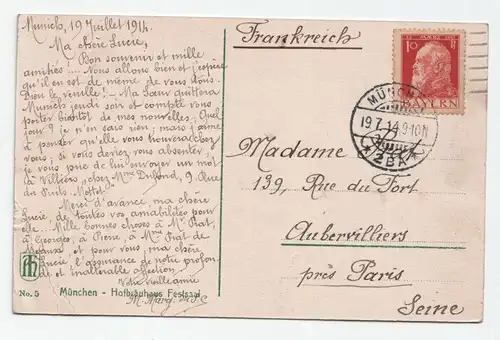 Munich, 19 Juillet 1914.
Ma chère Lucie,
Bon souvenir et mille
amitiés .... Nous allons bien et j'espère
qu'il en est de même de vous tous.
Dieu le veuille! - Ma Sœur quittera
Munich jeudi soir et compte vous
porter bientôt de mes nouvelles; Quel
jour? je n'en sais rien; mais j'aime
à penser que elle vous trouvera chez
vous; si vous deviez vous absenter,
je vous prie de lui envoyer un mot
à Villiers, chez Mme Dubond, 9 Rue
du Puits Mottet
Merci d'avance ma chère
Lucie, de toutes vos amabilités pour
elle. Mille bonnes choses à Mr Piat,
à Georges, à Irène, à Mme Piat de
et pour vous, ma chère
Lucie, l'assurance de notre profonde
et inaltérable affection.
Votre vieille amie
M. Marg.
No. 5 München - Hofbräuhaus Festsaal
Frankreich
10 Pf
BAYERN
MÜNCHEN
19.7.14.9-10N
* 2 B.A. *
Madame
139, Rue du Fort
Aubervilliers
près Paris
Seine